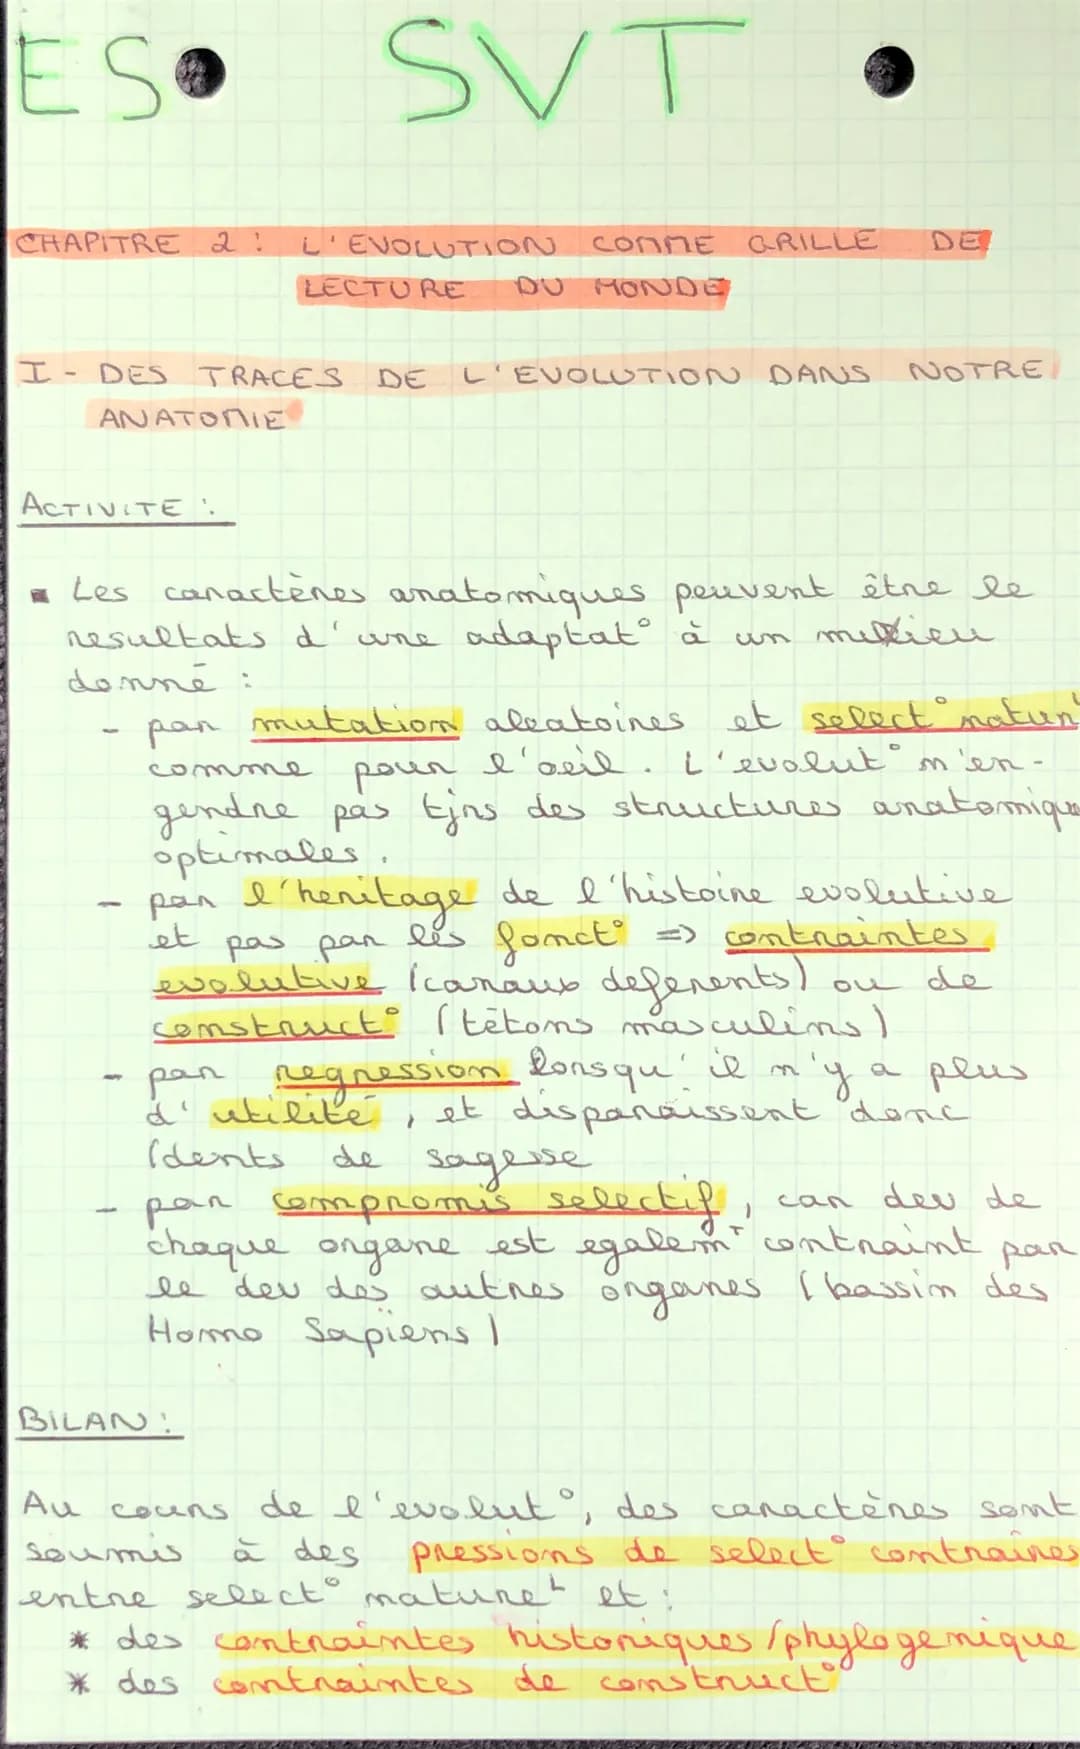 ES SVT
CHAPITRE 2 : L'EVOLUTION COMME GRILLE DE
LECTURE DU MONDE
I - DES TRACES DE L'EVOLUTION DANS NOTRE
ANATOMIE
ACTIVITE :
▪ Les caractères anatomiques peuvent être le
resultats d'une adaptat° à un milieu
donné :
- par mutation aleatoires et select° natur
comme pour l'oeil. L'evolut° n'en-
gendre pas tjrs des structures anatomique
optimales.
- par l'heritage de l'histoire evolutive
et pas par les fonct° => contraintes
evolutive (canaux deferents) ou de
construct° (tétons masculins)
- par regression lorsqu'il n'y a plus
d'utilité, et disparaissent donc
(dents de sagesse
- par compromis selectif, car dev de
chaque organe est egalemT contraint par
le dev des autres organes (bassin des
Homo Sapiens)
BILAN :
Au cours de l'evolut°, des caractères sont
soumis à des pressions de select° contraires
entre select° natureL et :
* des contraintes historiques/phylogenique
* des contraintes de construct°